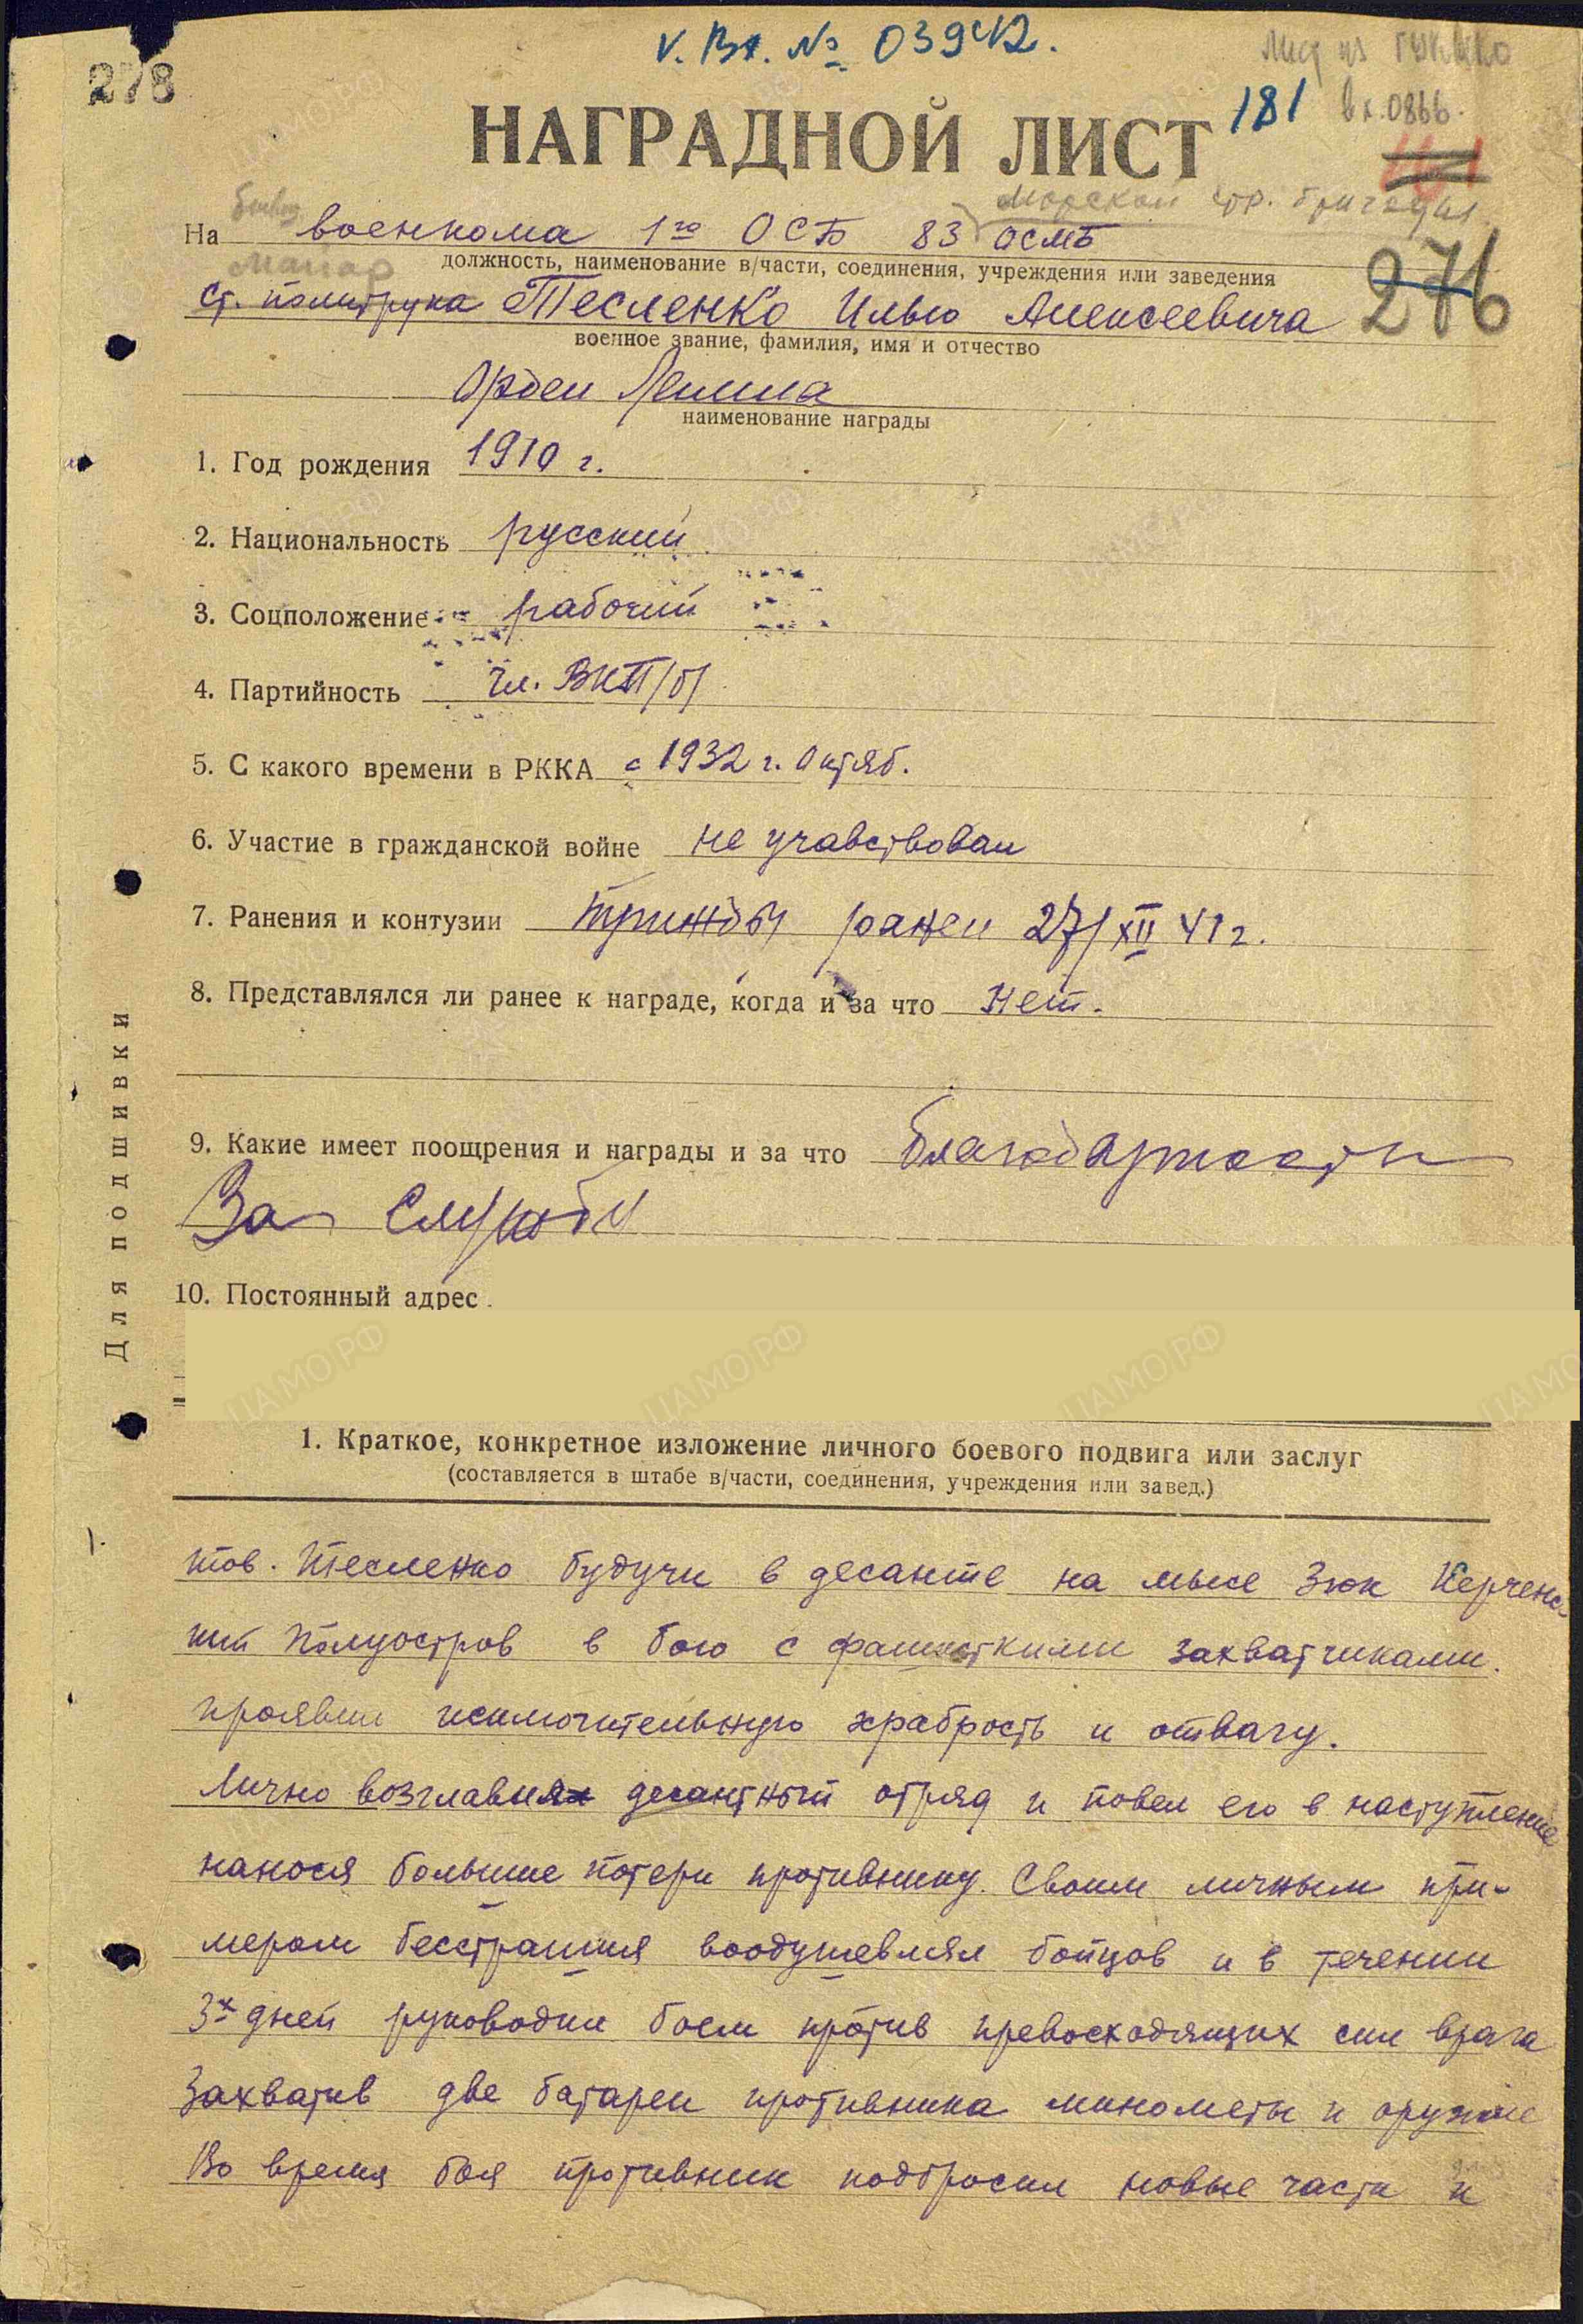 V. Вх. № 03942.
278
181
вх. 0866.
НАГРАДНОЙ ЛИСТ
Морской стр. бригады
На военкома 1го ОСБ 83 ОСМБ
должность, наименование в/части, соединения, учреждения или заведения
276
ст. политрука Тесленко Илью Алексеевича
военное звание, фамилия, имя и отчество
Орден Ленина
наименование награды
1. Год рождения 1910 г.
2. Национальность русский
3. Соцположение рабочий
4. Партийность чл. ВКП/б/
5. С какого времени в РККА с 1932 г. Октяб.
6. Участие в гражданской войне не учавствовал
7. Ранения и контузии трижды ранен 27/XII 41 г.
8. Представлялся ли ранее к награде, когда и за что Нет.
9. Какие имеет поощрения и награды и за что благодарности
За службу
10. Постоянный адрес
Для подшивки
1. Краткое, конкретное изложение личного боевого подвига или заслуг
(составляется в штабе в/части, соединения, учреждения или завед.)
тов. Тесленко будучи в десанте на мысе Зюк Керченс-
кий полуостров в бою с фашисткими захватчиками.
проявил исключительную храбрость и отвагу.
Лично возглавил десантный отряд и повел его в наступление
нанося большие потери противнику. Своим личным при-
мером бесстрашия воодушевлял бойцов и в течении
3х дней руководил боем против превосходящих сил врага
Захватив две батареи противника минометы и оружие
Во время боя противник подбросил новые части и